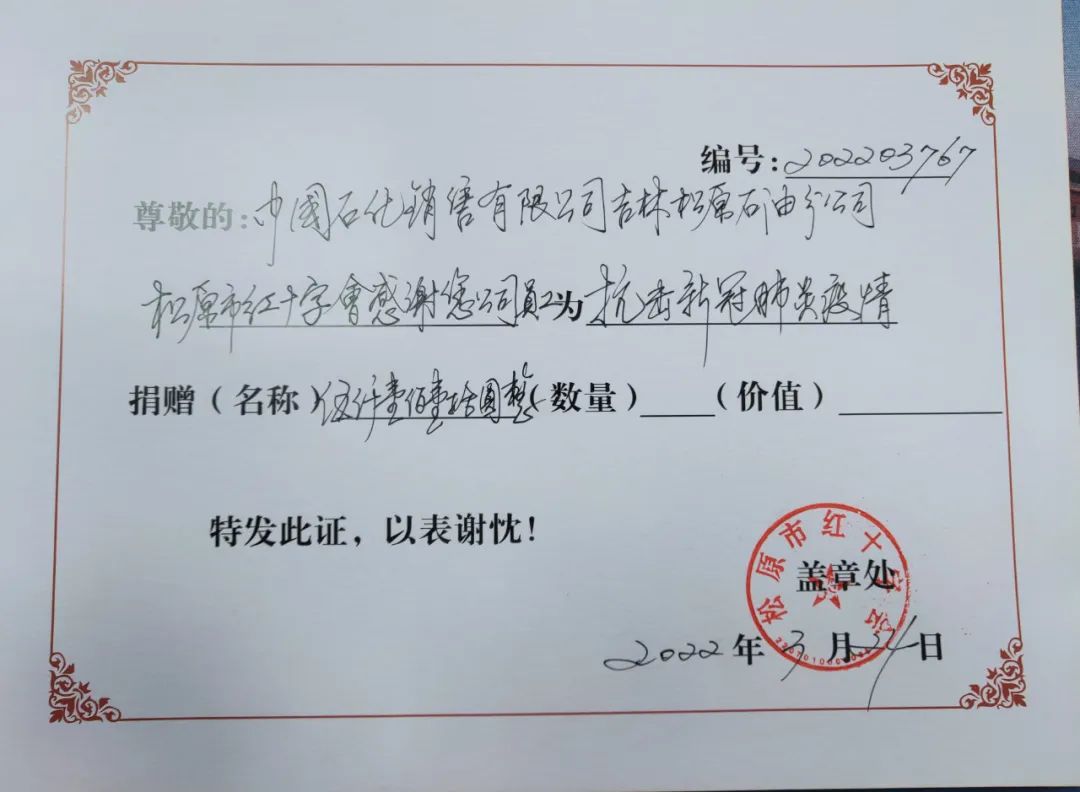 编号:202203767
尊敬的:中國石化销售有限公司吉林松原石油分公司
松原市红十字會感谢您公司員工为抗击新冠肺炎疫情
捐赠(名称)伍仟壹佰壹拾圆整(数量)____(价值)________
特发此证,以表谢忱!
松原市红十字会
盖章处
2022年3月24日